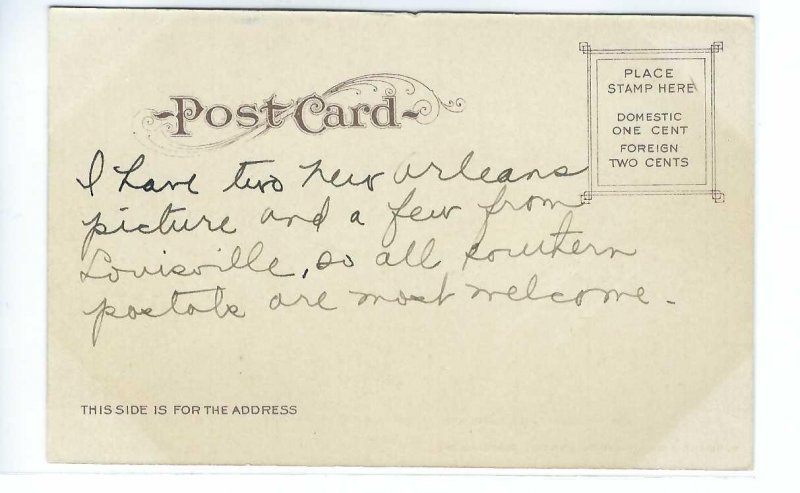 Post Card
PLACE
STAMP HERE
DOMESTIC
ONE CENT
FOREIGN
TWO CENTS
I have two New Orleans
picture and a few from
Louisville, so all southern
postals are most welcome.
THIS SIDE IS FOR THE ADDRESS